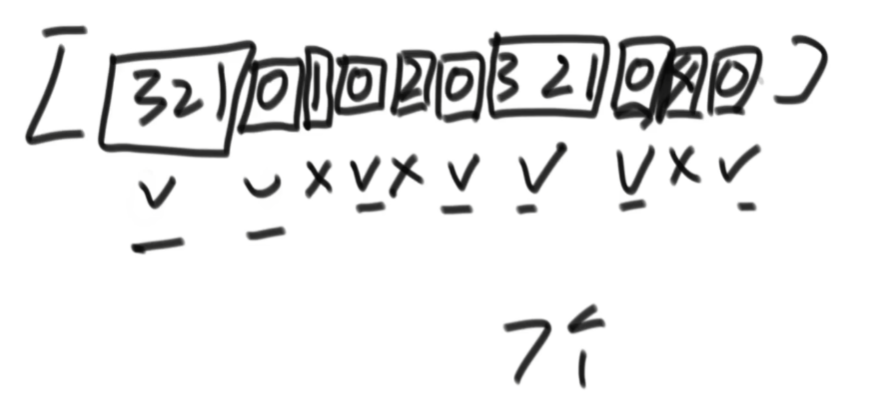 [ 3 2 1 0 1 0 2 0 3 2 1 0 0 ]
✓ ✓ × ✓ × ✓ ✓ ✓ × ✓
7个